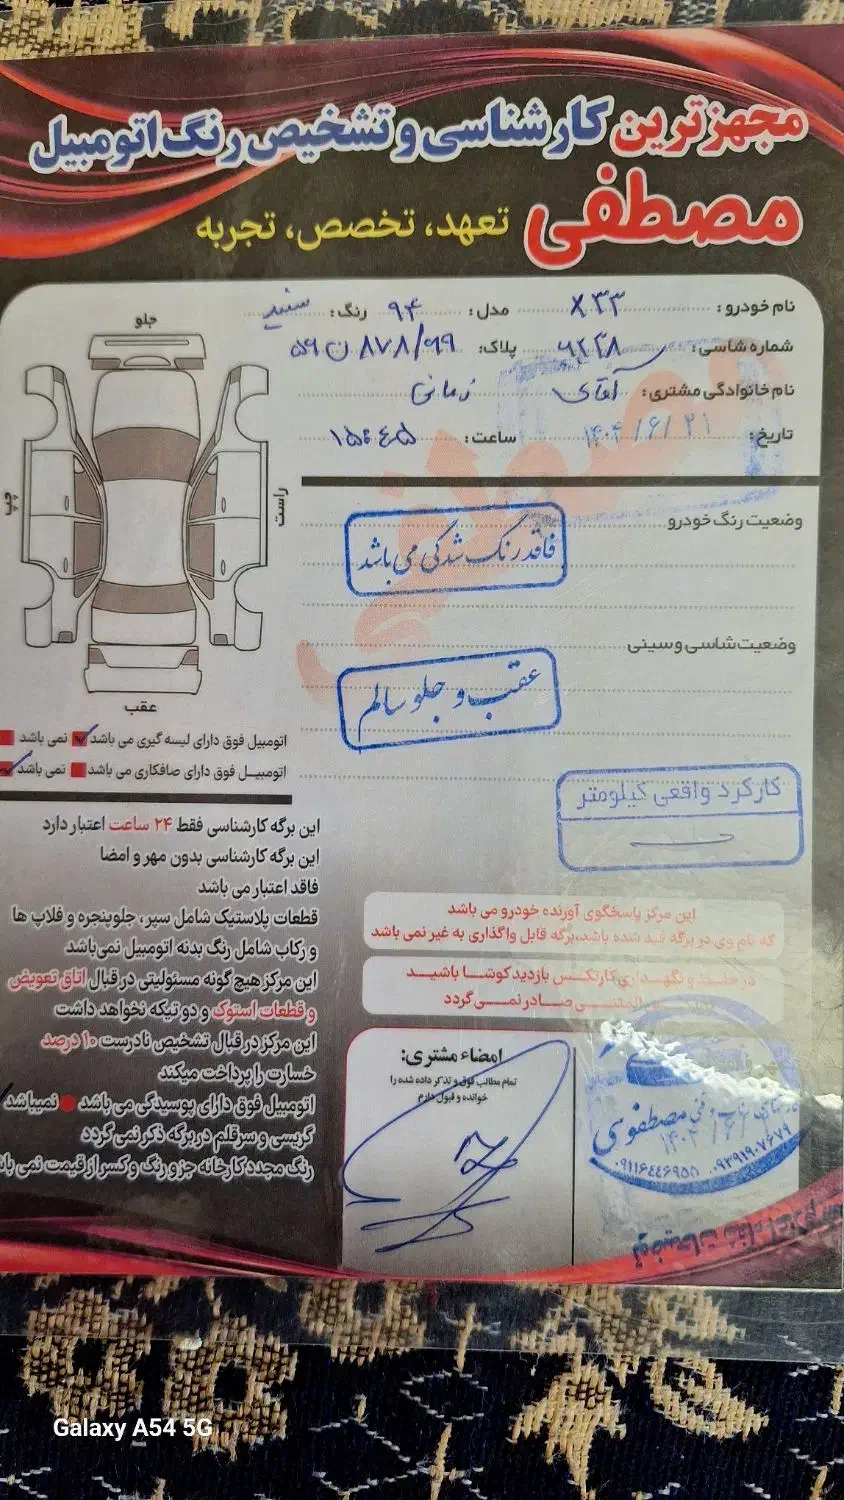 مجهزترین کارشناسی و تشخیص رنگ اتومبیل
مصطفی تعهد، تخصص، تجربه
نام خودرو: X۳۳ مدل: ۹۴ رنگ: سفید
شماره شاسی: پلاک:
نام خانوادگی مشتری: آقای زمانی
تاریخ: ۱۴۰۴/۶/۲۱ ساعت: ۱۵:۴۵
جلو
چپ
راست
عقب
وضعیت رنگ خودرو
فاقد رنگ شدگی می باشد
وضعیت شاسی و سینی
عقب و جلو سالم
کارکرد واقعی کیلومتر
اتومبیل فوق دارای لیسه گیری می باشد نمی باشد
اتومبیل فوق دارای صافکاری می باشد نمی باشد
این برگه کارشناسی فقط ۲۴ ساعت اعتبار دارد
این برگه کارشناسی بدون مهر و امضا
فاقد اعتبار می باشد
قطعات پلاستیک شامل سپر، جلوپنجره و فلاپ ها
و رکاب شامل رنگ بدنه اتومبیل نمی‌باشد
این مرکز هیچ گونه مسئولیتی در قبال اتاق تعویض
و قطعات استوک و دو تیکه نخواهد داشت
این مرکز در قبال تشخیص نادرست ۱۰ درصد
خسارت را پرداخت میکند
اتومبیل فوق دارای پوسیدگی می باشد نمیباشد
گریسی و سرقلم در برگه ذکر نمی گردد
رنگ مجدد کارخانه جزو رنگ و کسر از قیمت نمی
این مرکز پاسخگوی آورنده خودرو می باشد
که نام وی در برگه قید شده باشد، برگه قابل واگذاری به غیر نمی باشد
در حفظ و نگهداری کارتکس بازدید کوشا باشید
المثنی صادر نمی گردد
امضاء مشتری:
تمام مطالب فوق و تذکر داده شده را
خوانده و قبول دارم
مصطفوی